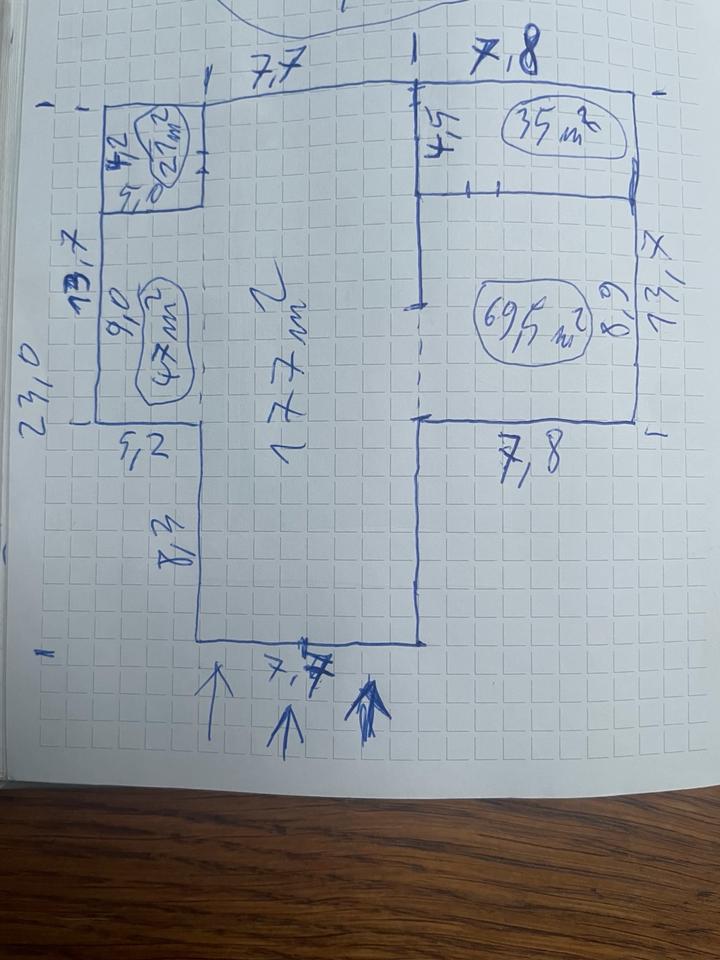 7,7
7,8
4,2
21 m²
5,0
4,5
35 m²
13,7
9,0
47 m²
177 m²
69,5 m²
8,9
13,7
23,0
5,2
7,8
8,3
7,7